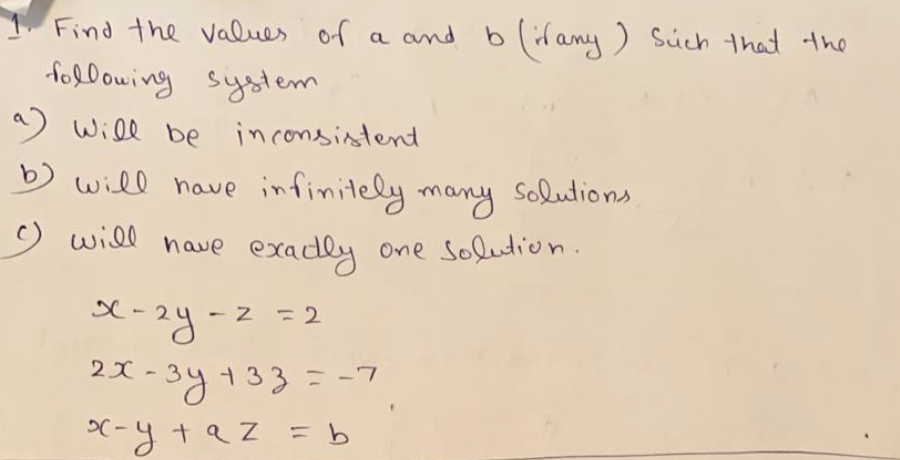 1. Find the values of a and b (if any) such that the
following system
a) Will be inconsistent
b) will have infinitely many solutions
c) will have exactly one solution.
x - 2y - z = 2
2x - 3y + 3z = -7
x - y + az = b